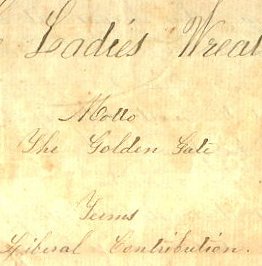 Ladies' Wreat
Motto
The Golden Gate
Terms
Liberal Contribution.